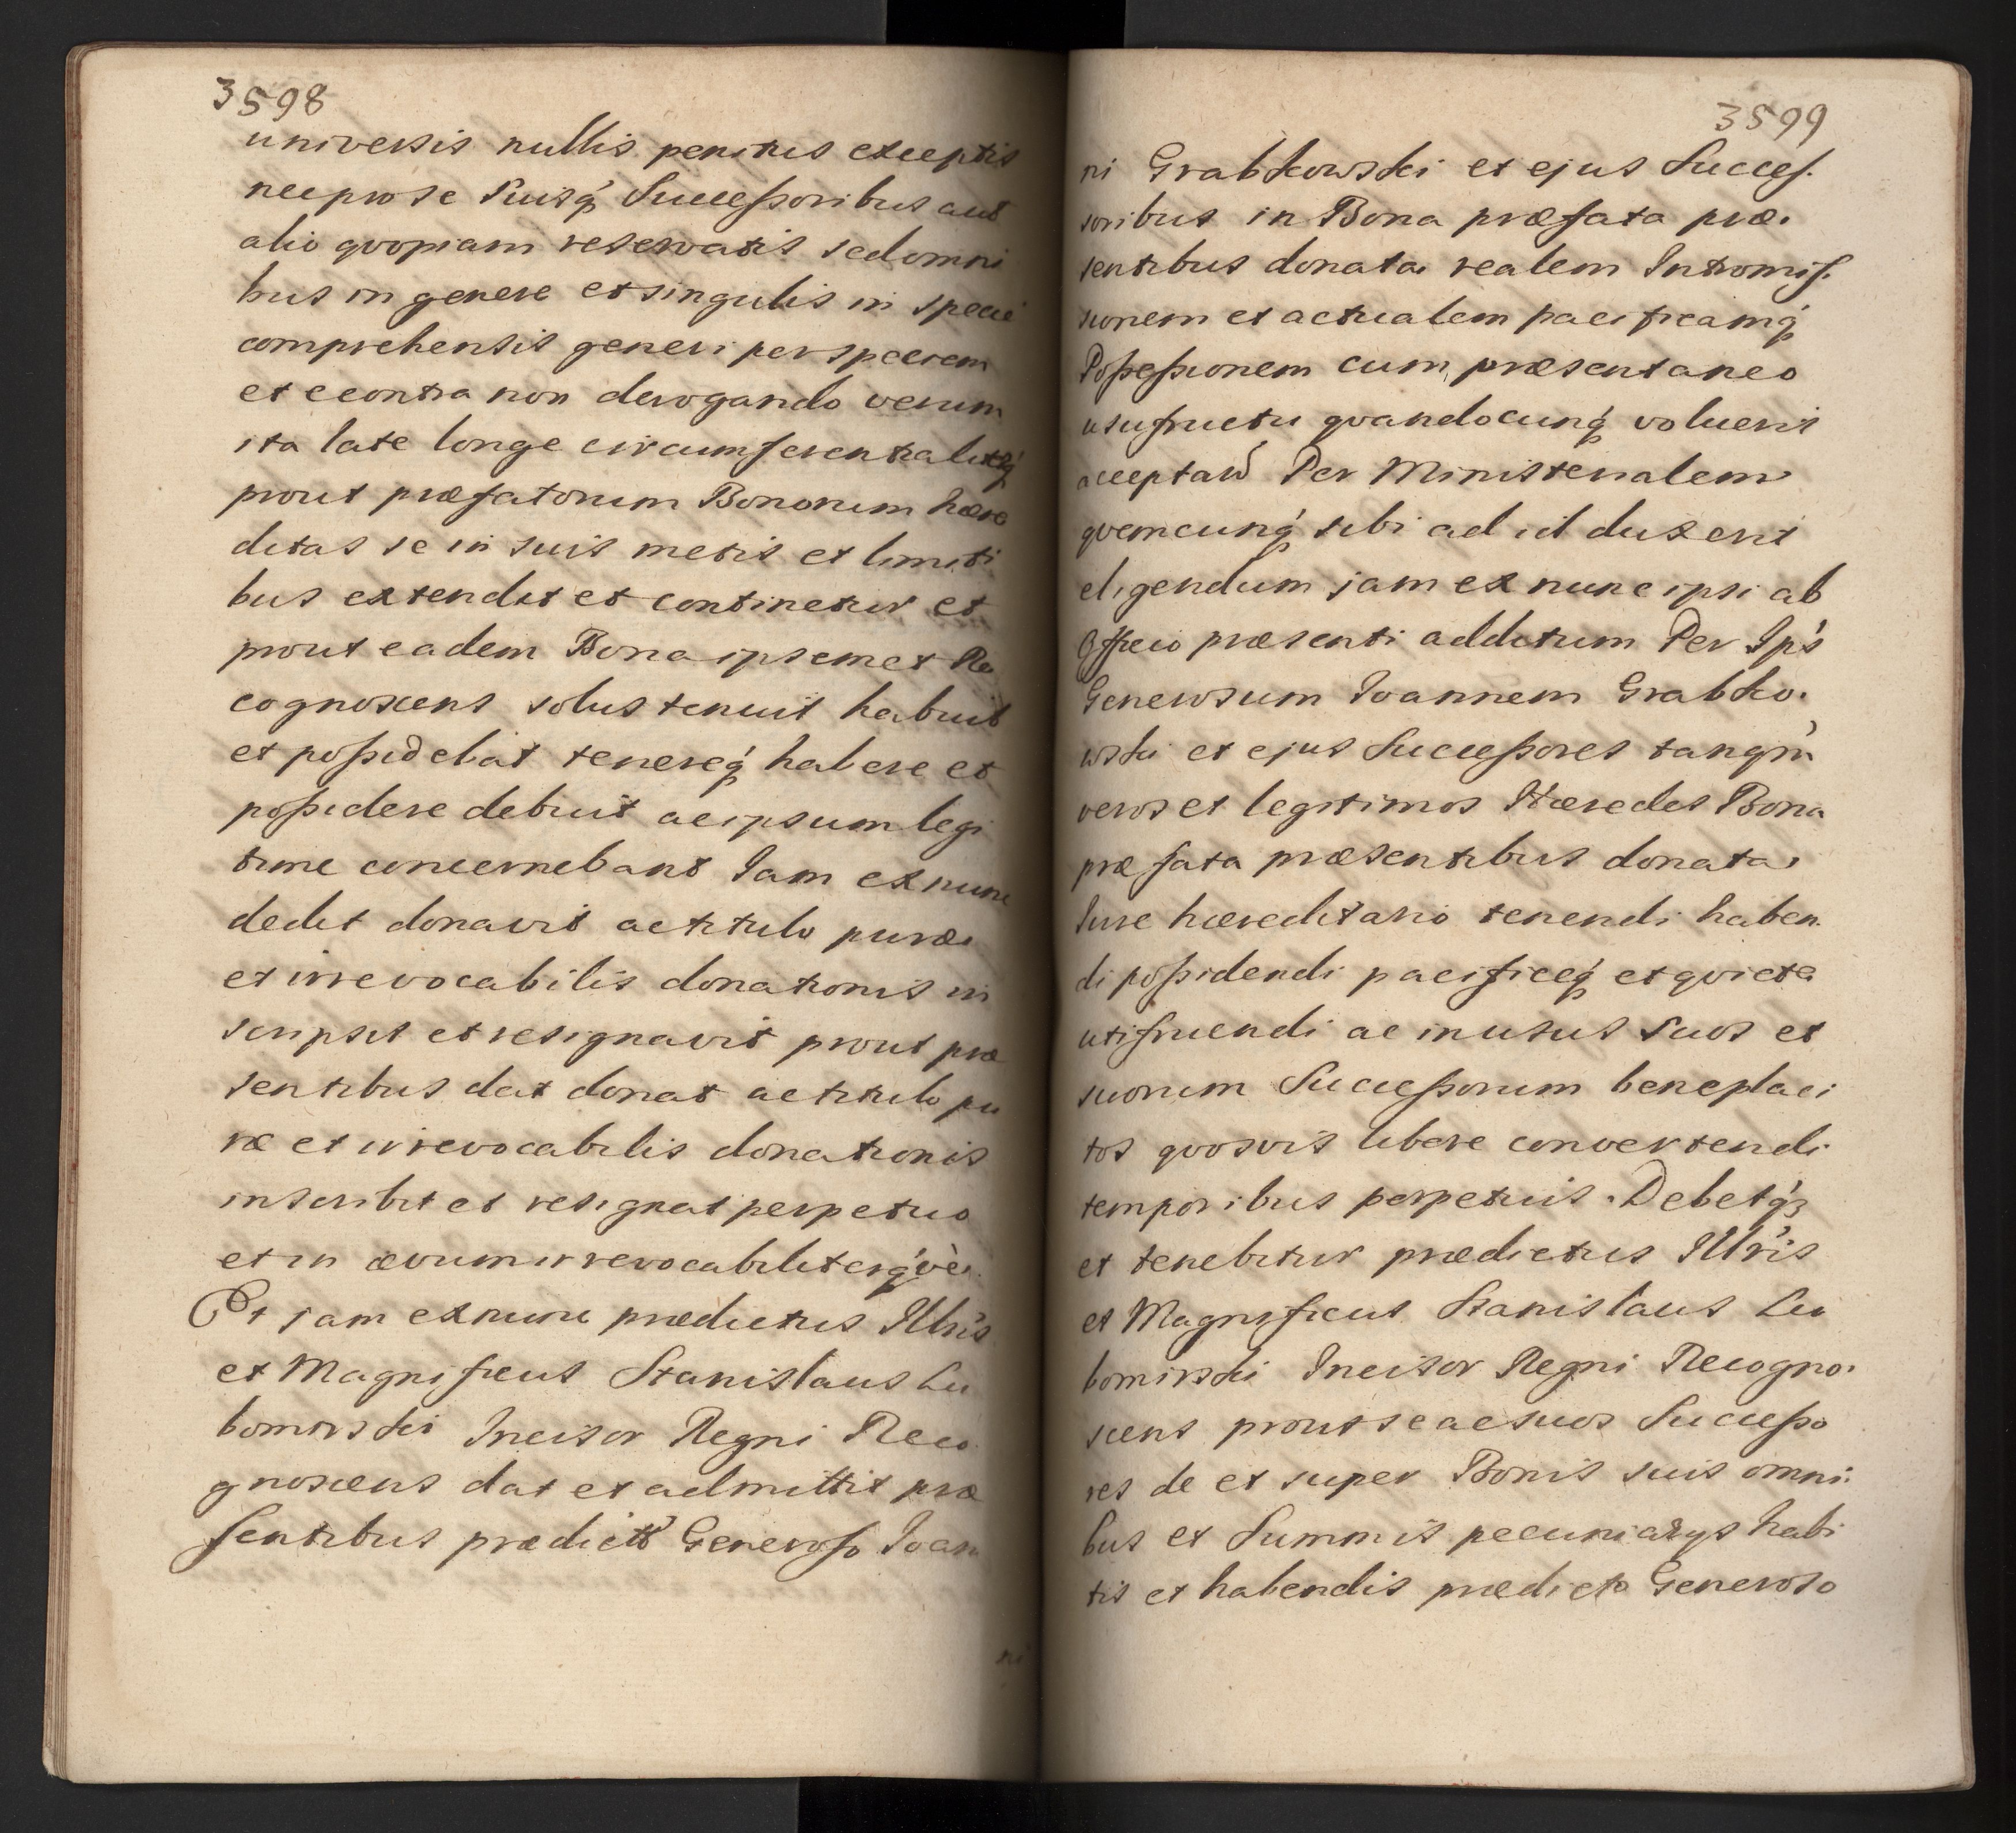 3598
universis nullis penitus exceptis
necprose Suisq́ Successoribus aut
alio qvopiam reservatis sedomni
bus in genere et singulis in specie
comprehensis generi per speciem
et econtra non derogando verum
ita late longe circumferentialiterq́
prout præfatorum Bonorum hære
ditas se in suis metis et limiti
bus extendit et continetur et
prout eadem Bona ipsemet Re
cognoscens solus tenuit habuit
et possidebat tenereq́ habere et
possidere debuit ac ipsum legi
time concernebant Iam ex nunc
dedit donavit ac titulo puræ
et irrevocabilis donationis in
scripsit et resignavit prout præ
sentibus dat donat ac titulo pu
ræ et irrevocabilis donationis
inscribit et resignat perpetuo
et in ævum irrevocabiliterq́vè.
Et jam ex nunc prædictus Illris
et Magnificus Stanislaus Lu
bomirski Incisor Regni Reco
gnoscens dat et admittit præ
sentibus prædicto Generoso Ioan
ni
3599
ni Grabkowski et ejus Succes.
soribus in Bona præfata præ.
sentibus donata realem Intromis.
sionem et actualem pacificamq́
Possessionem cum præsentaneo
usufructu qvandocunq́ voluerit
acceptare Per Ministerialem
qvemcunq́ sibi ad id duxerit
eligendum jam ex nunc ipsi ab
Officio præsenti additum Per Ip̃s
Generosum Ioannem Grabko.
wski et ejus Successores tanqm̃
veros et legitimos Hæredes Bona
præfata præsentibus donata
Iure hæreditario tenendi haben.
di possidendi pacificeq́ et qviete
utifruendi ac in usus suos et
suorum Successorum beneplaci
tos qvosvis libere convertendi
temporibus perpetuis. Debetq́
et tenebitur prædictus Illris
et Magnificus Stanislaus Lu
bomirski Incisor Regni Recogno.
scens prout se ac suos Successo
res de et super Bonis suis omni.
bus et Summis pecuniarys habi
tis et habendis prædicto Generoso